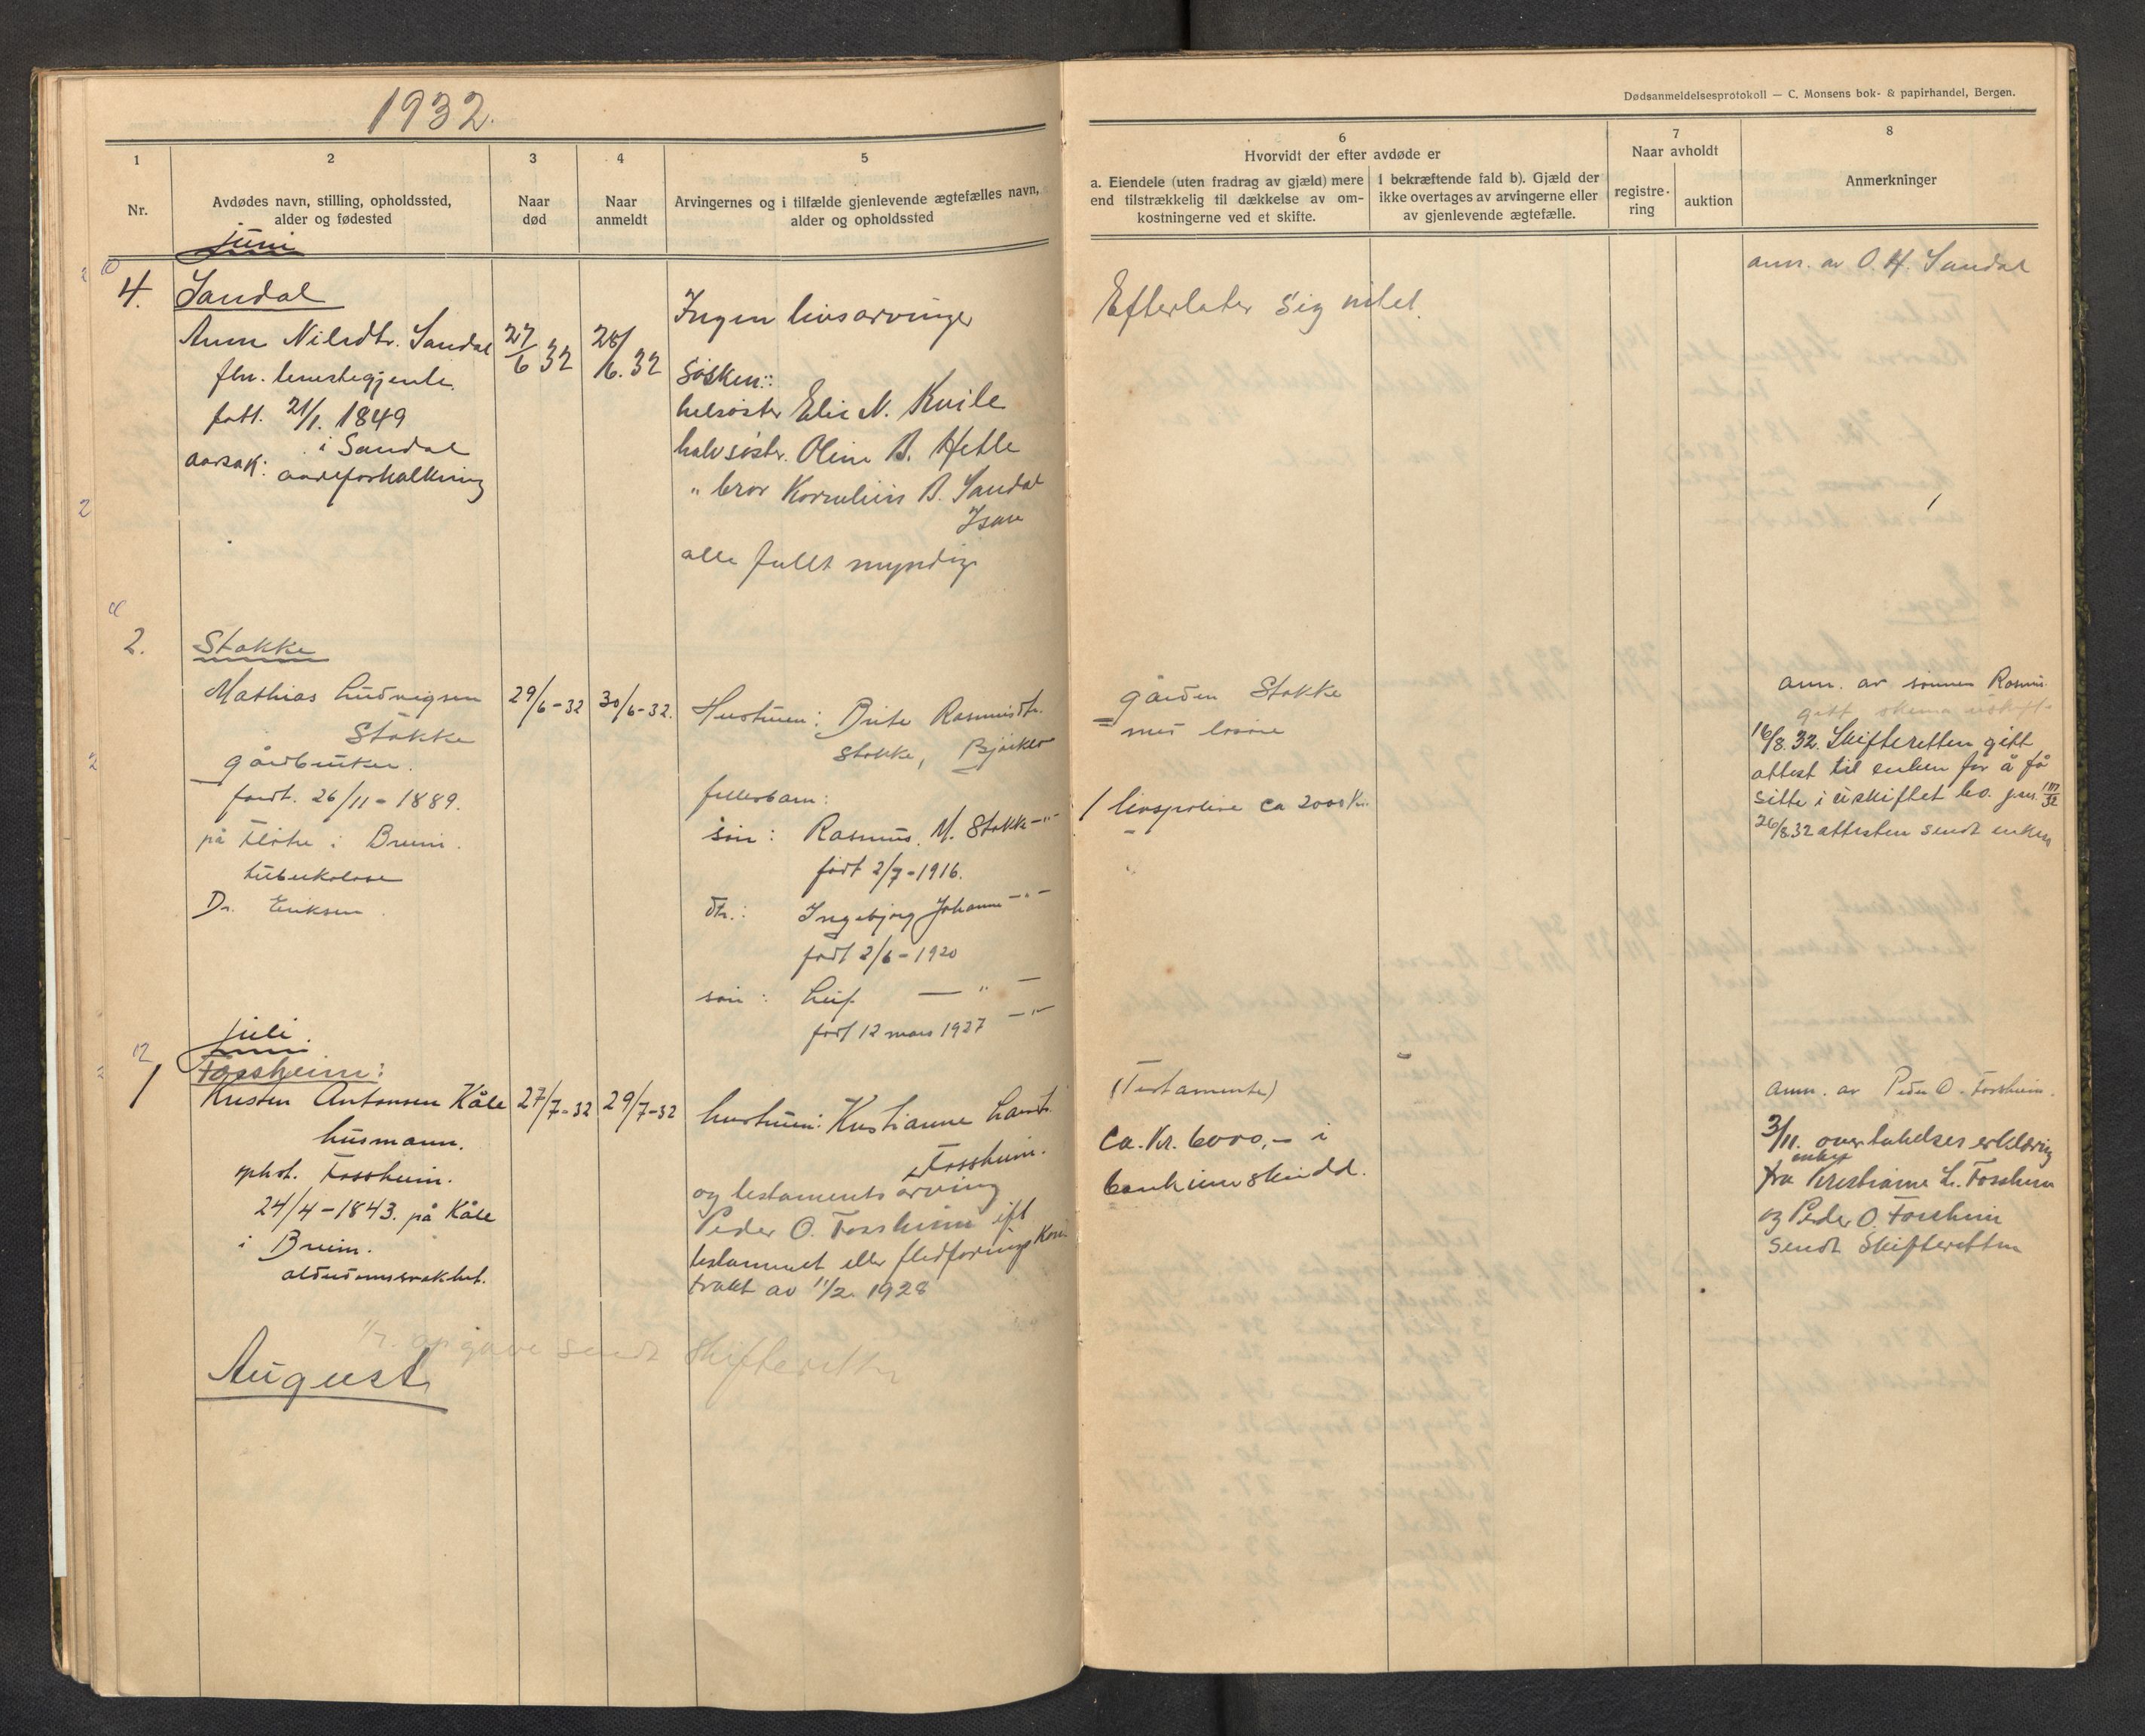 1932.
Dødsanmeldelsesprotokoll — C. Monsens bok- & papirhandel, Bergen.
1
2
3
4
5
6
7
8
Nr.
Avdødes navn, stilling, opholdssted,
alder og fødested
Naar
død
Naar
anmeldt
Arvingernes og i tilfælde gjenlevende ægtefælles navn,
alder og opholdssted
Hvorvidt der efter avdøde er
a. Eiendele (uten fradrag av gjæld) mere
end tilstrækkelig til dækkelse av om-
kostningerne ved et skifte.
I bekræftende fald b). Gjæld der
ikke overtages av arvingerne eller
av gjenlevende ægtefælle.
Naar avholdt
registre-
ring
auktion
Anmerkninger
juni
4.
Sandal
Anne Nilsdtr. Sandal
fhv.
født. 21/1. 1849
i Sandal
aarsak: aareforkalkning
27/6 32
28/6. 32
Ingen livsarvinger
Søsken:
helsøster Elis N. Kvile
halvsøster. Oline B. Hetle
" bror Kornelius B. Sandal
alle fullt myndig
Efterlater sig intet.
anm. av O. H. Sandal
2.
Stokke
Mathias Ludvigsen
Stokke
gårdbruker.
født. 26/11-1889.
på Fløtre i Breim.
tuberkolose
Dr. Eriksen.
29/6-32
30/6-32.
Hustruen: Brite Rasmusdtr.
Stokke,
fellesbarn:
søn: Rasmus M. Stokke -"-
født 2/7-1916.
dtr.: Ingebjørg Johanne -"-
født 2/6-1920
søn: Leif - " -
født 12 mars 1927 -"-
gården Stokke
med løsøre
livspolise ca 2000 Kr.
anm. av sønnen Rasmus
gitt skema uskift.
16/8.32. Skifteretten gitt
attest til enken for å få
sitte i uskiftet bo.
26/8.32 attesten sendt enken
juli
1
Fossheim:
Kristen Antonsen Kåle
husmann.
opholdst. Fossheim.
24/4-1843. på Kåle
i Breim.
alderdomssvakhet.
27/7-32
29/7-32
hustruen: Kristianne
Fossheim.
og testamentsarving
Peder O. Fossheim ifl
testamnet eller fledføringskon-
trakt av 11/2 1928
(Testamente)
ca. Kr. 6000,- i
bankinnskudd.
anm. av Peder O. Fossheim.
3/11. overtakelseserklæring
fra enken Kristianne L. Fossheim
og Peder O. Fossheim
sendt Skifteretten
opgave sendt skifteretten
August